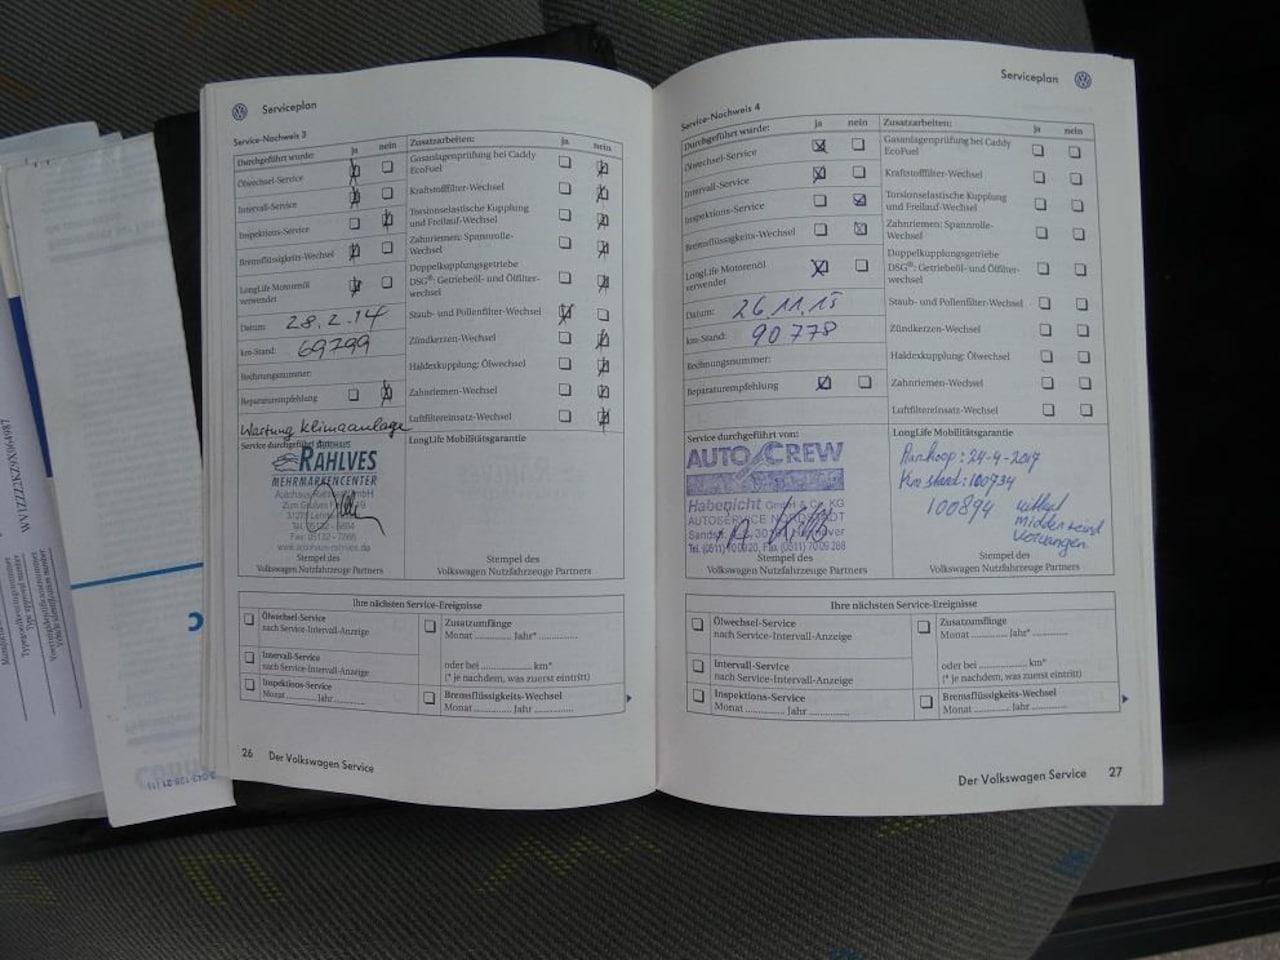 Serviceplan
Service-Nachweis 3
Durchgeführt wurde: ja nein
Ölwechsel-Service
Intervall-Service
Inspektions-Service
Bremsflüssigkeits-Wechsel
LongLife Motorenöl
verwendet
Datum: 28.2.14
km-Stand: 69799
Rechnungsnummer:
Reparaturempfehlung
Wartung Klimaanlage
Zusatzarbeiten: ja nein
Gasanlagenprüfung bei Caddy
EcoFuel
Kraftstofffilter-Wechsel
Torsionselastische Kupplung
und Freilauf-Wechsel
Zahnriemen: Spannrolle-
Wechsel
Doppelkupplungsgetriebe
DSG®: Getriebeöl- und Ölfilter-
wechsel
Staub- und Pollenfilter-Wechsel
Zündkerzen-Wechsel
Haldexkupplung: Ölwechsel
Zahnriemen-Wechsel
Luftfiltereinsatz-Wechsel
Service durchgeführt
AUTOHAUS
RAHLVES
MEHRMARKENCENTER
Autohaus Rahlves GmbH
Tel. 05132 -
Fax: 05132 -
www.autohaus-rahlves.de
Stempel des
Volkswagen Nutzfahrzeuge Partners
LongLife Mobilitätsgarantie
Stempel des
Volkswagen Nutzfahrzeuge Partners
Ihre nächsten Service-Ereignisse
Ölwechsel-Service
nach Service-Intervall-Anzeige
Intervall-Service
nach Service-Intervall-Anzeige
Inspektions-Service
Monat ............ Jahr ............
Zusatzumfänge
Monat ............ Jahr* ............
oder bei ............ km*
(* je nachdem, was zuerst eintritt)
Bremsflüssigkeits-Wechsel
Monat ............ Jahr ............
26 Der Volkswagen Service
Serviceplan
Service-Nachweis 4
Durchgeführt wurde: ja nein
Ölwechsel-Service
Intervall-Service
Inspektions-Service
Bremsflüssigkeits-Wechsel
LongLife Motorenöl
verwendet
Datum: 26.11.15
km-Stand: 90778
Rechnungsnummer:
Reparaturempfehlung
Zusatzarbeiten: ja nein
Gasanlagenprüfung bei Caddy
EcoFuel
Kraftstofffilter-Wechsel
Torsionselastische Kupplung
und Freilauf-Wechsel
Zahnriemen: Spannrolle-
Wechsel
Doppelkupplungsgetriebe
DSG®: Getriebeöl- und Ölfilter-
wechsel
Staub- und Pollenfilter-Wechsel
Zündkerzen-Wechsel
Haldexkupplung: Ölwechsel
Zahnriemen-Wechsel
Luftfiltereinsatz-Wechsel
Service durchgeführt von:
AUTO CREW
Habenicht GmbH & Co. KG
AUTOSERVICE NORDSTADT
Stempel des
Volkswagen Nutzfahrzeuge Partners
LongLife Mobilitätsgarantie
Aankoop: 24-4-2017
Km stand: 100734
100894
Stempel des
Volkswagen Nutzfahrzeuge Partners
Ihre nächsten Service-Ereignisse
Ölwechsel-Service
nach Service-Intervall-Anzeige
Intervall-Service
nach Service-Intervall-Anzeige
Inspektions-Service
Monat ............ Jahr ............
Zusatzumfänge
Monat ............ Jahr* ............
oder bei ............ km*
(* je nachdem, was zuerst eintritt)
Bremsflüssigkeits-Wechsel
Monat ............ Jahr ............
Der Volkswagen Service 27
WV1ZZZ2KZ9X064987
Type approval number
Vehicle identification number